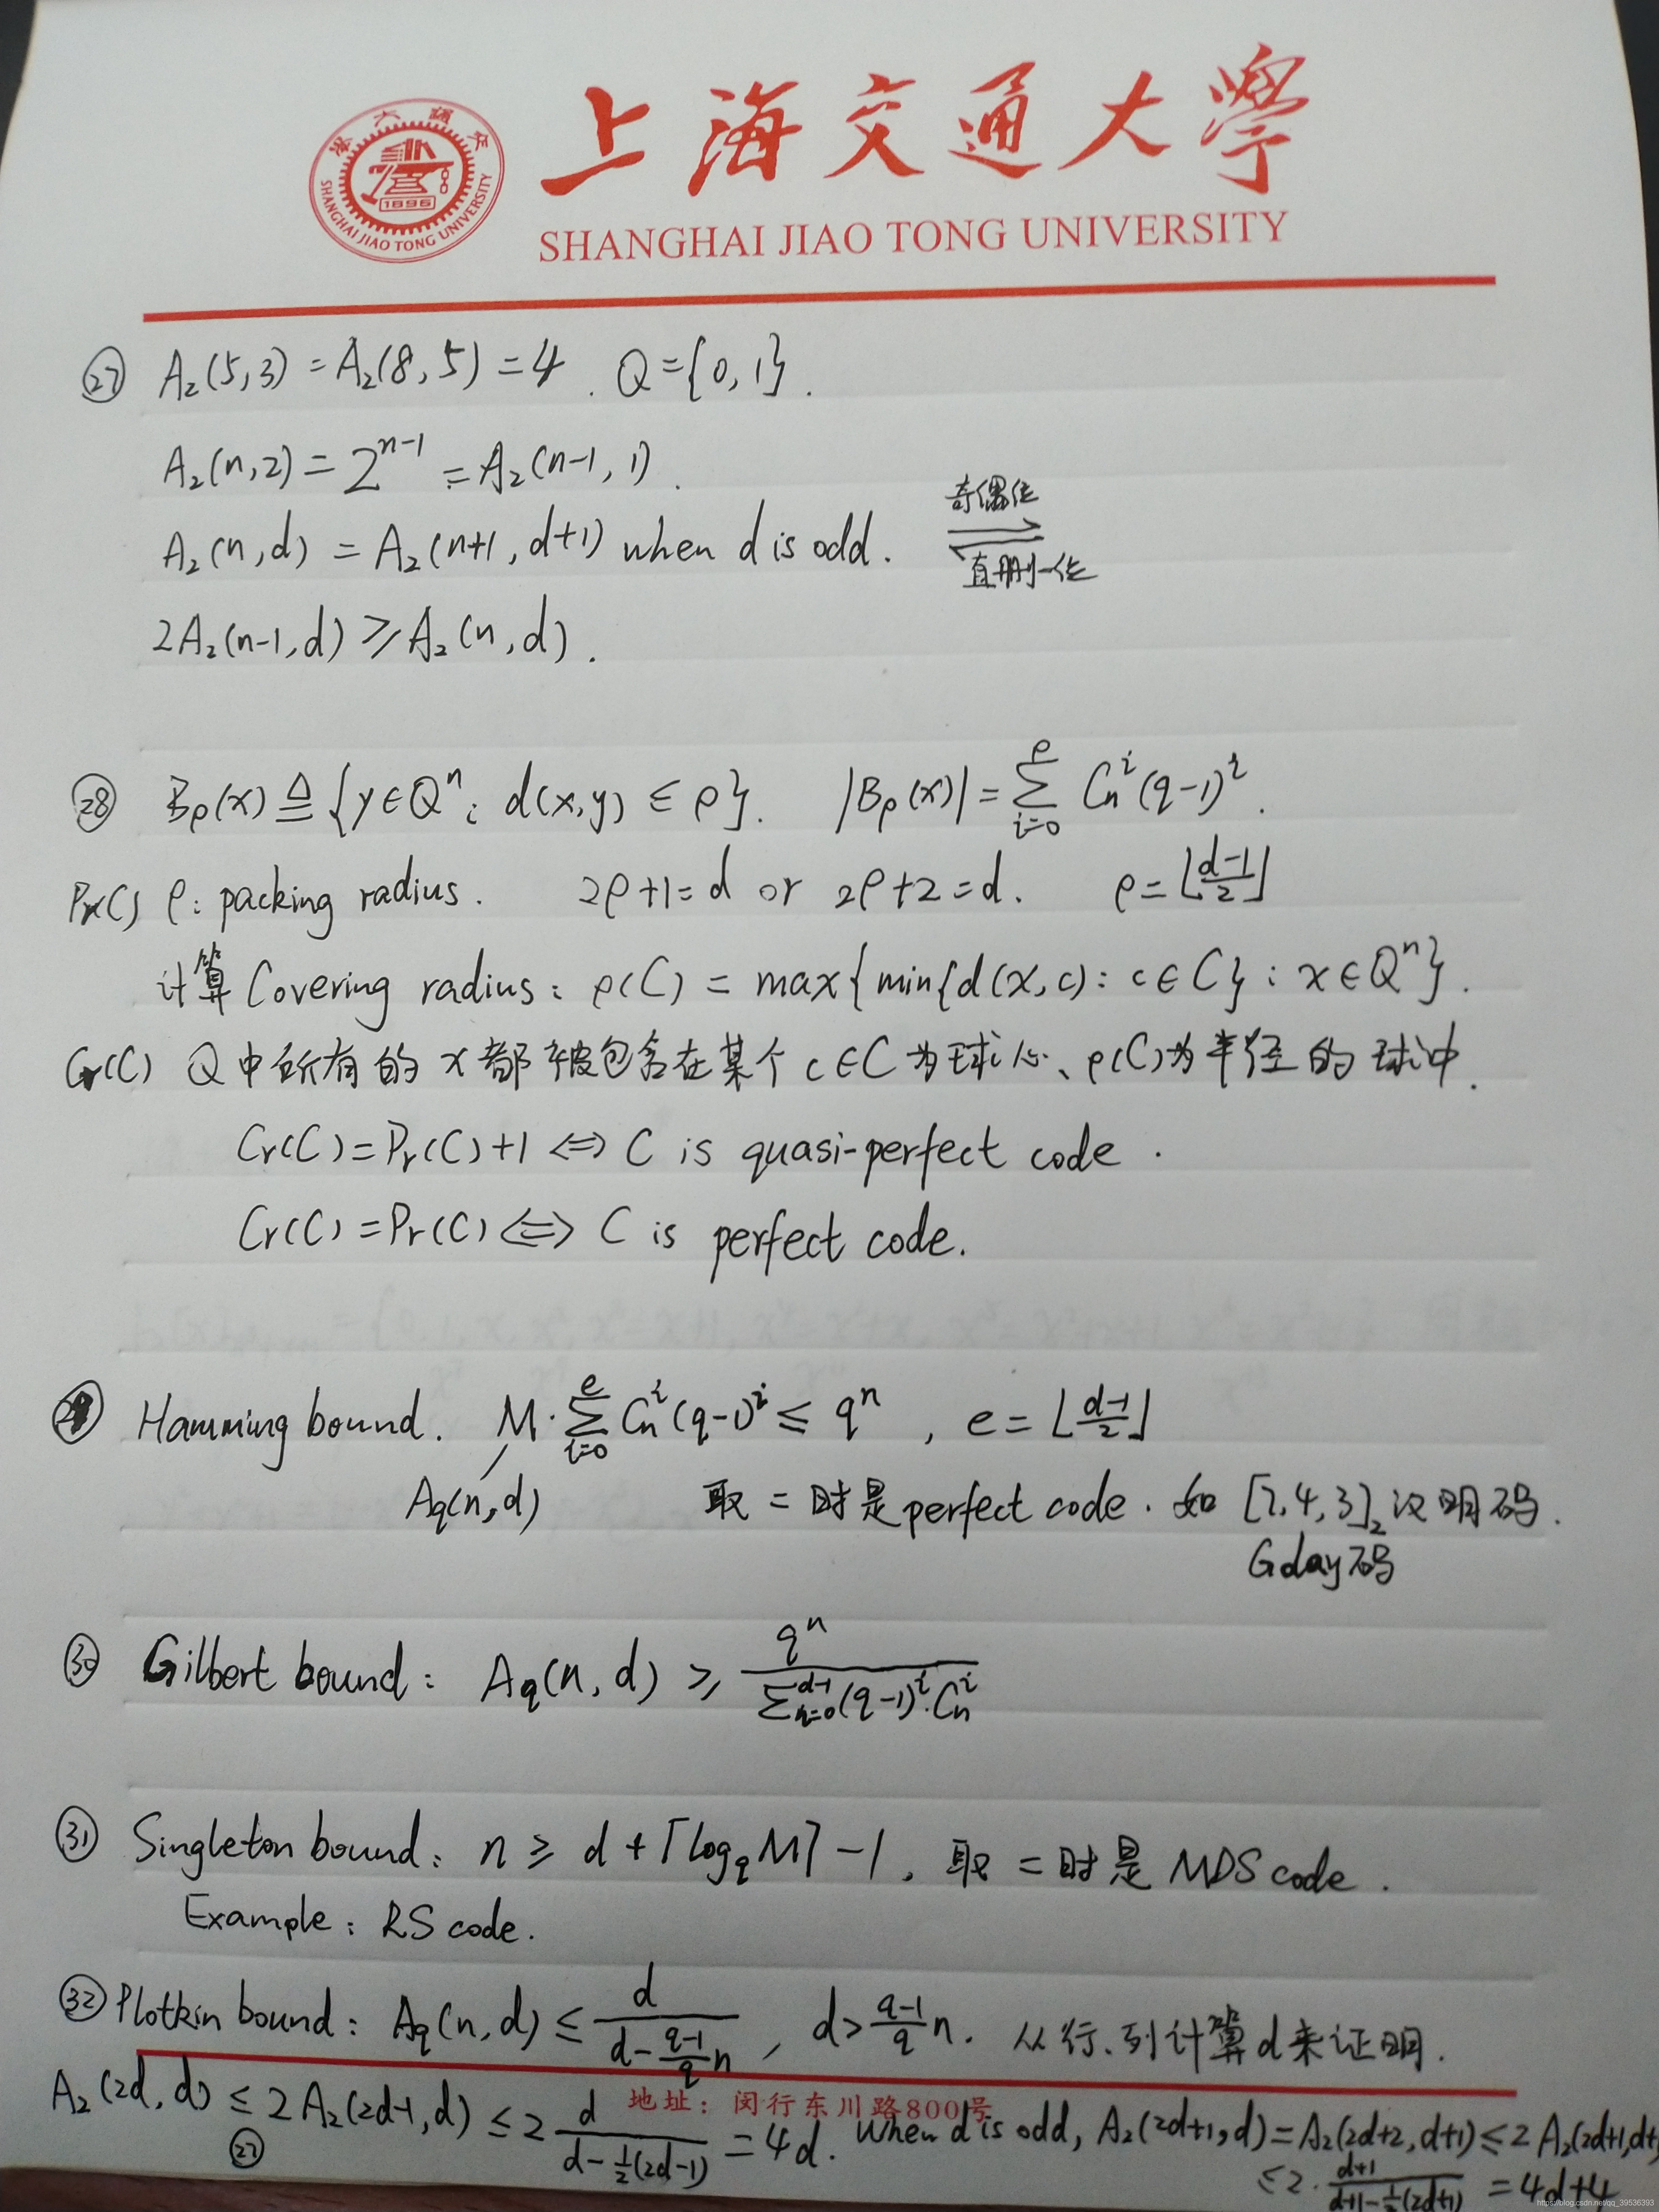 上海交通大學
SHANGHAI JIAO TONG UNIVERSITY
SHANGHAI JIAO TONG UNIVERSITY
1896
㉗ A₂(5,3) = A₂(8,5) = 4 . Q = {0,1} .
A₂(n,2) = 2^{n-1} = A₂(n-1, 1) .
A₂(n,d) = A₂(n+1, d+1) when d is odd. 奇偶位 ⇌ 直删一位
2A₂(n-1,d) ≥ A₂(n,d) .
㉘ B_ρ(x) ≜ {y∈Qⁿ : d(x,y) ≤ ρ}. |B_ρ(x)| = \sum_{i=0}^{ρ} C_n^i (q-1)^i .
Pr(C) ρ: packing radius. 2ρ+1=d or 2ρ+2=d. ρ=⌊\frac{d-1}{2}⌋
计算 Covering radius: ρ(C) = max{min{d(x,c): c∈C} : x∈Qⁿ} .
Cr(C) Q中所有的x都被包含在某个c∈C为球心、ρ(C)为半径的球中.
Cr(C)=Pr(C)+1 ⇔ C is quasi-perfect code .
Cr(C)=Pr(C) ⇔ C is perfect code.
㉙ Hamming bound. M·\sum_{i=0}^{e} C_n^i (q-1)^i ≤ qⁿ , e = ⌊\frac{d-1}{2}⌋
Aq(n,d) 取 = 时是 perfect code . 如 [7,4,3]₂ 汉明码 .
Golay码
㉚ Gilbert bound: Aq(n,d) ≥ \frac{q^n}{\sum_{i=0}^{d-1}(q-1)^i·C_n^i}
㉛ Singleton bound: n ≥ d + ⌈log_q M⌉ -1 , 取 = 时是 MDS code .
Example: RS code.
㉜ Plotkin bound: Aq(n,d) ≤ \frac{d}{d-\frac{q-1}{q}n} , d>\frac{q-1}{q}n. 从行、列计算d来证明.
地址：闵行东川路800号
A₂(2d,d) ≤ 2A₂(2d-1,d) ≤ 2\frac{d}{d-\frac{1}{2}(2d-1)} = 4d. When d is odd, A₂(2d+1,d) = A₂(2d+2,d+1) ≤ 2A₂(2d+1,d+
㉗
≤2·\frac{d+1}{d+1-\frac{1}{2}(2d+1)} = 4d+4
https://blog.csdn.net/qq_39536393